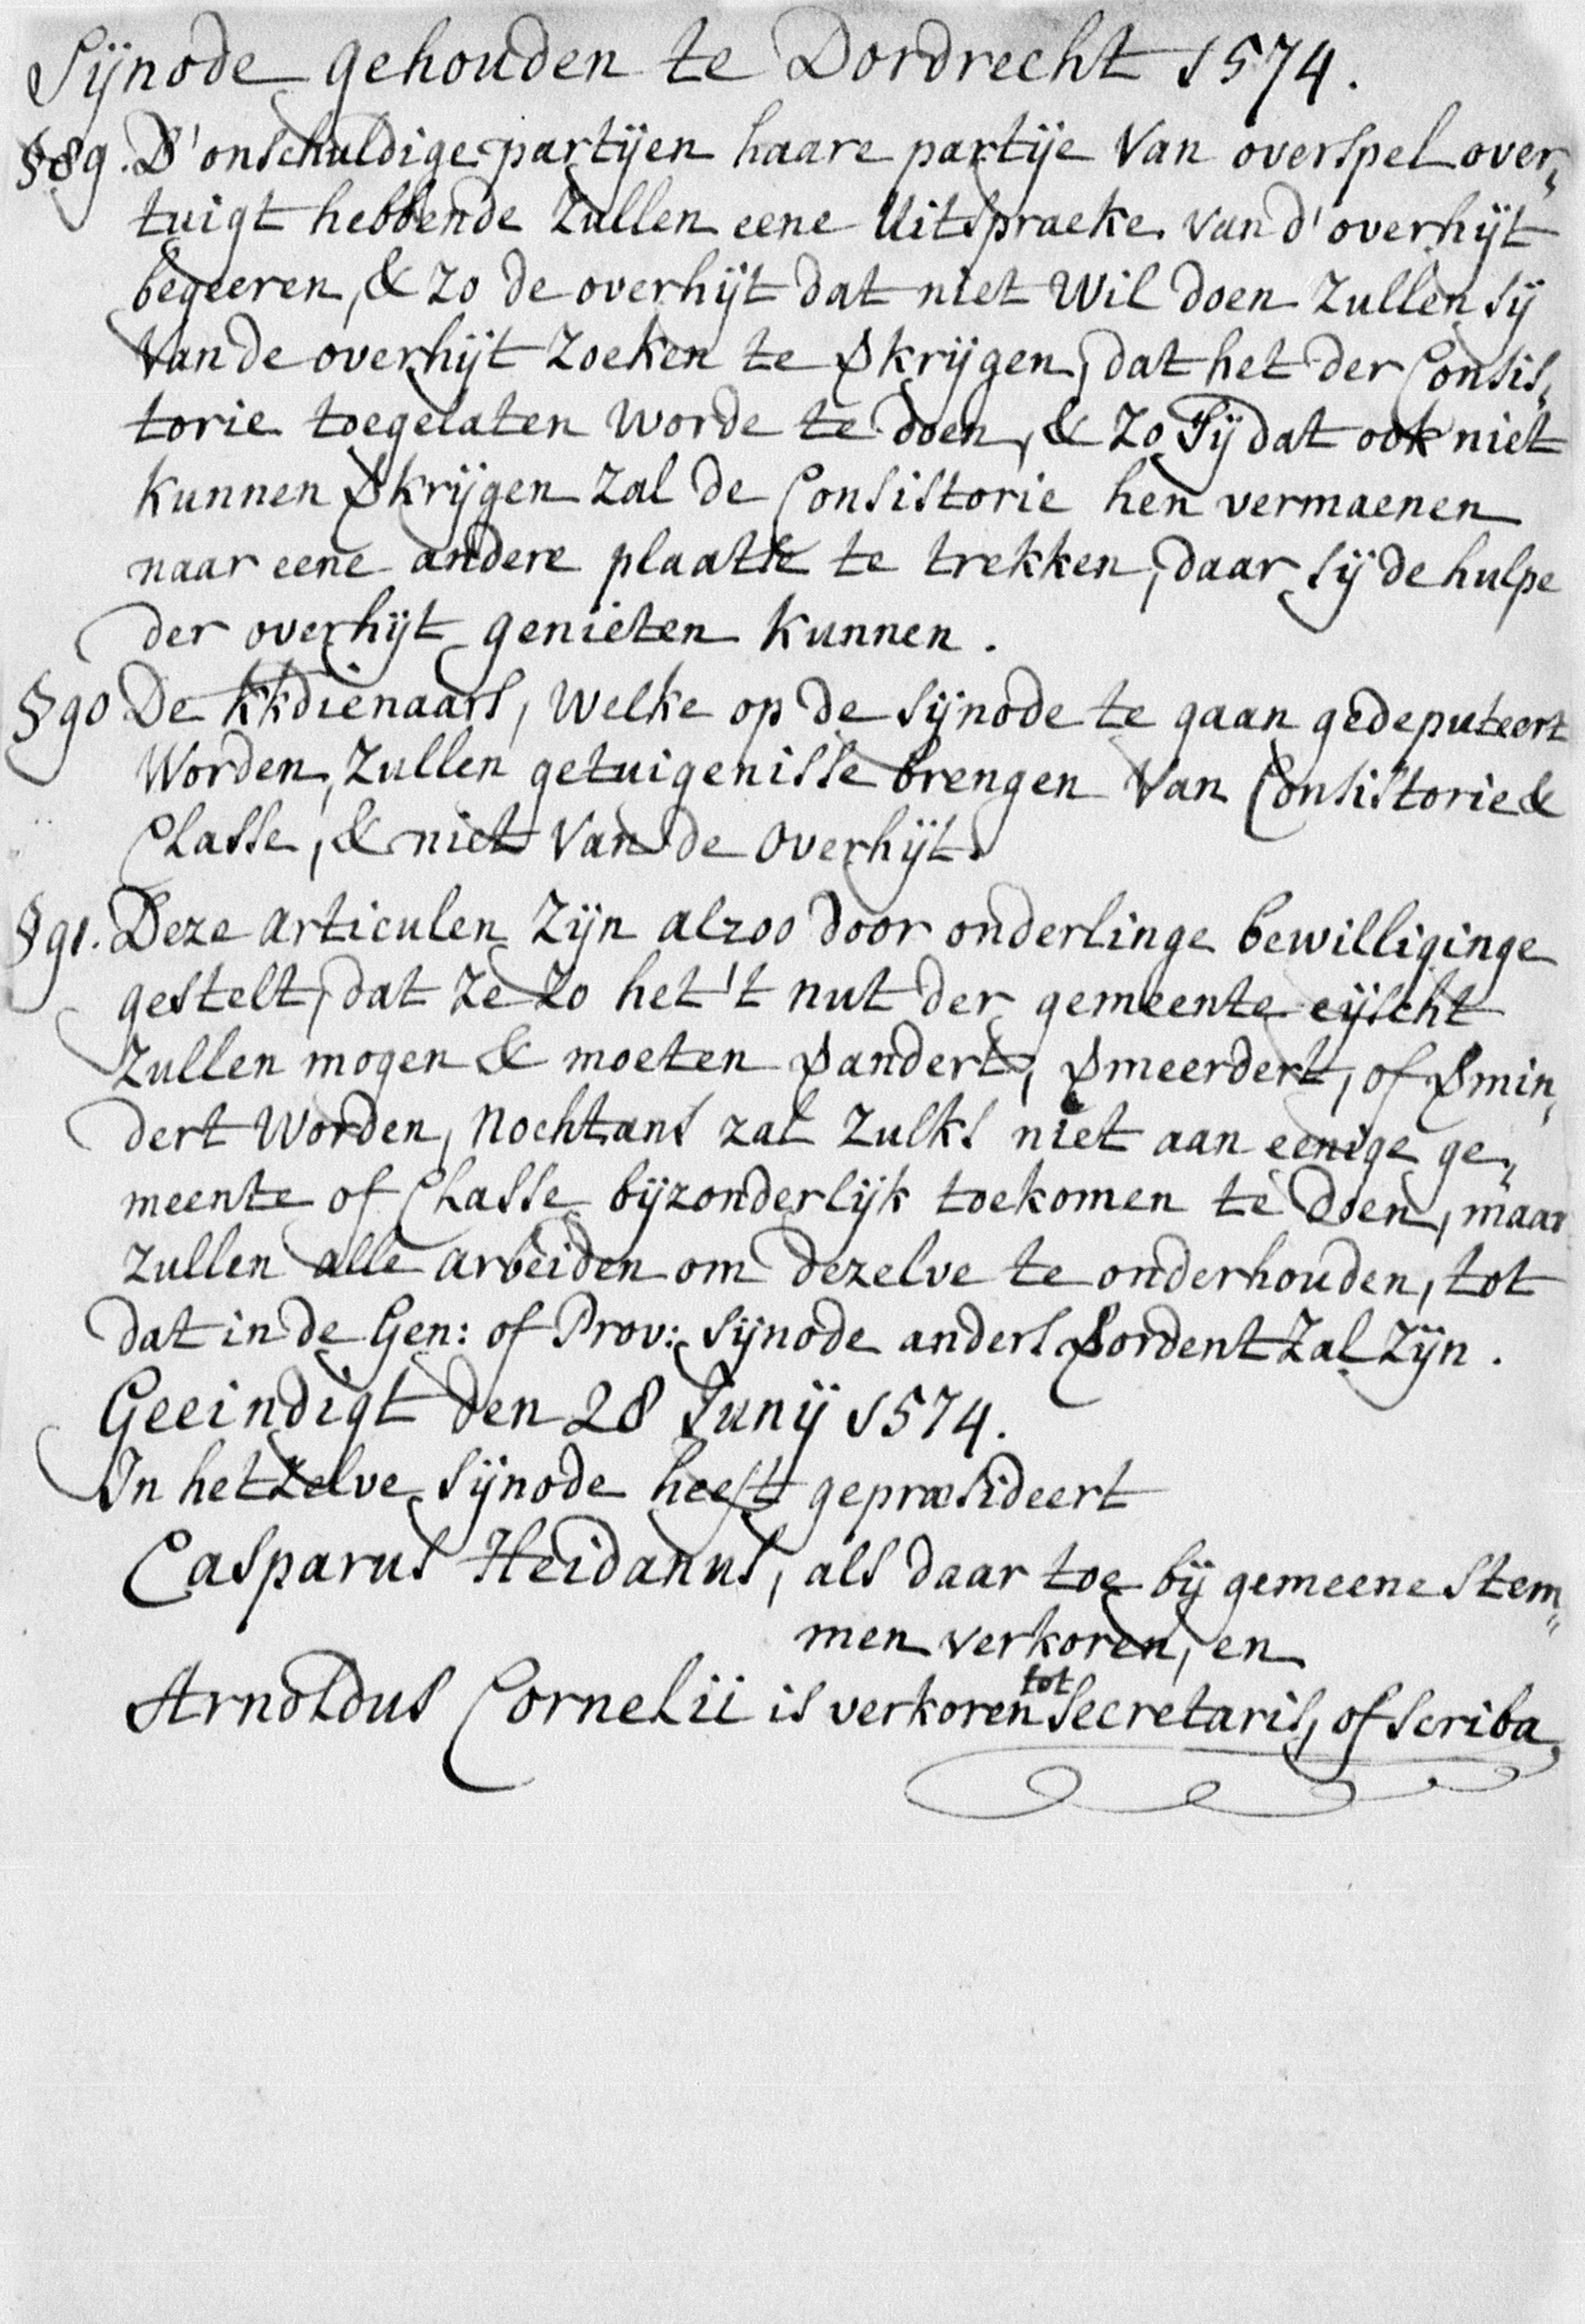 Sijnode gehouden te Dordrecht 1574.
§89. D'onschuldige partijen haare partije van overspel over„
tuigt hebbende zullen eene Uitspraeke van d'overhijt
begeeren, & zo de overhijt dat niet wil doen zullen sij
van de overhijt zoeken te ꝟkrijgen, dat het der Consis„
torie toegelaten worde te doen, & zo sij dat ook niet
kunnen ꝟkrijgen zal de Consistorie hen vermaenen
naar eene andere plaatse te trekken, daar sij de hulpe
der overhijt genieten kunnen.
§90 De kkdienaars, welke op de sijnode te gaan gedeputeert
worden, zullen getuigenisse brengen van Consistorie &
Classe, & niet van de overhijt.
§91. Deze articulen zijn alzoo door onderlinge bewilliginge
gestelt, dat ze zo het 't nut der gemeente eijscht
zullen mogen & moeten ꝟandert, ꝟmeerdert, of ꝟmin„
dert worden, nochtans zal zulks niet aan eenige ge„
meente of Classe bijzonderlijk toekomen te doen, maar
zullen alle arbeiden om dezelve te onderhouden, tot
dat in de Gen: of Prov: sijnode anders ꝟordent zal zijn.
Geeindigt den 28 Junij 1574.
In het zelve sijnode heeft gepræsideert
Casparus Heidanus, als daar toe bij gemeene stem„
men verkoren, en
Arnoldus Cornelii is verkoren tot secretaris, of scriba,